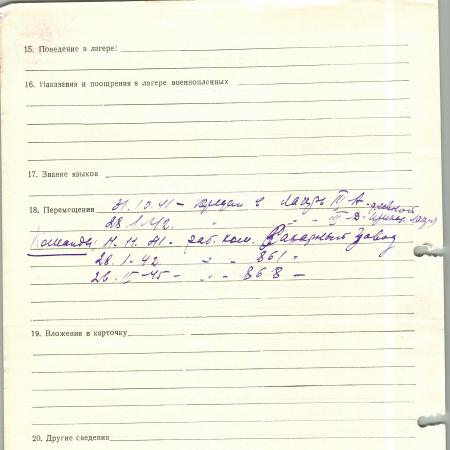 15. Поведение в лагере:
16. Наказания и поощрения в лагере военнопленных
17. Знание языков
18. Перемещения 31.10.41 - в лагерь III А
28.1.42. " - III-D
Команды: Н. Н. 41 - раб. ком. Сахарный завод
28.1-42 " " 861 "
26.II-45 - " " 868 -
19. Вложения в карточку
20. Другие сведения